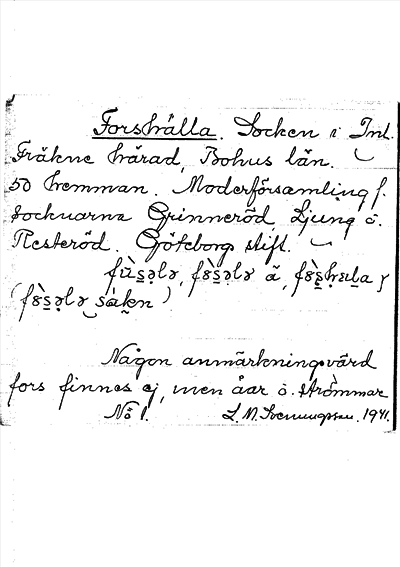 Forshälla. Socken i Inl.
Fräkne härad, Bohus län.
50 hemman. Moderförsamling f.
socknarna Grinneröd, Ljung o.
Resteröd. Göteborgs stift.
Någon anmärkningsvärd
fors finnes ej, men åar o. strömmar
No 1. L. M. Svenungsson. 1941.